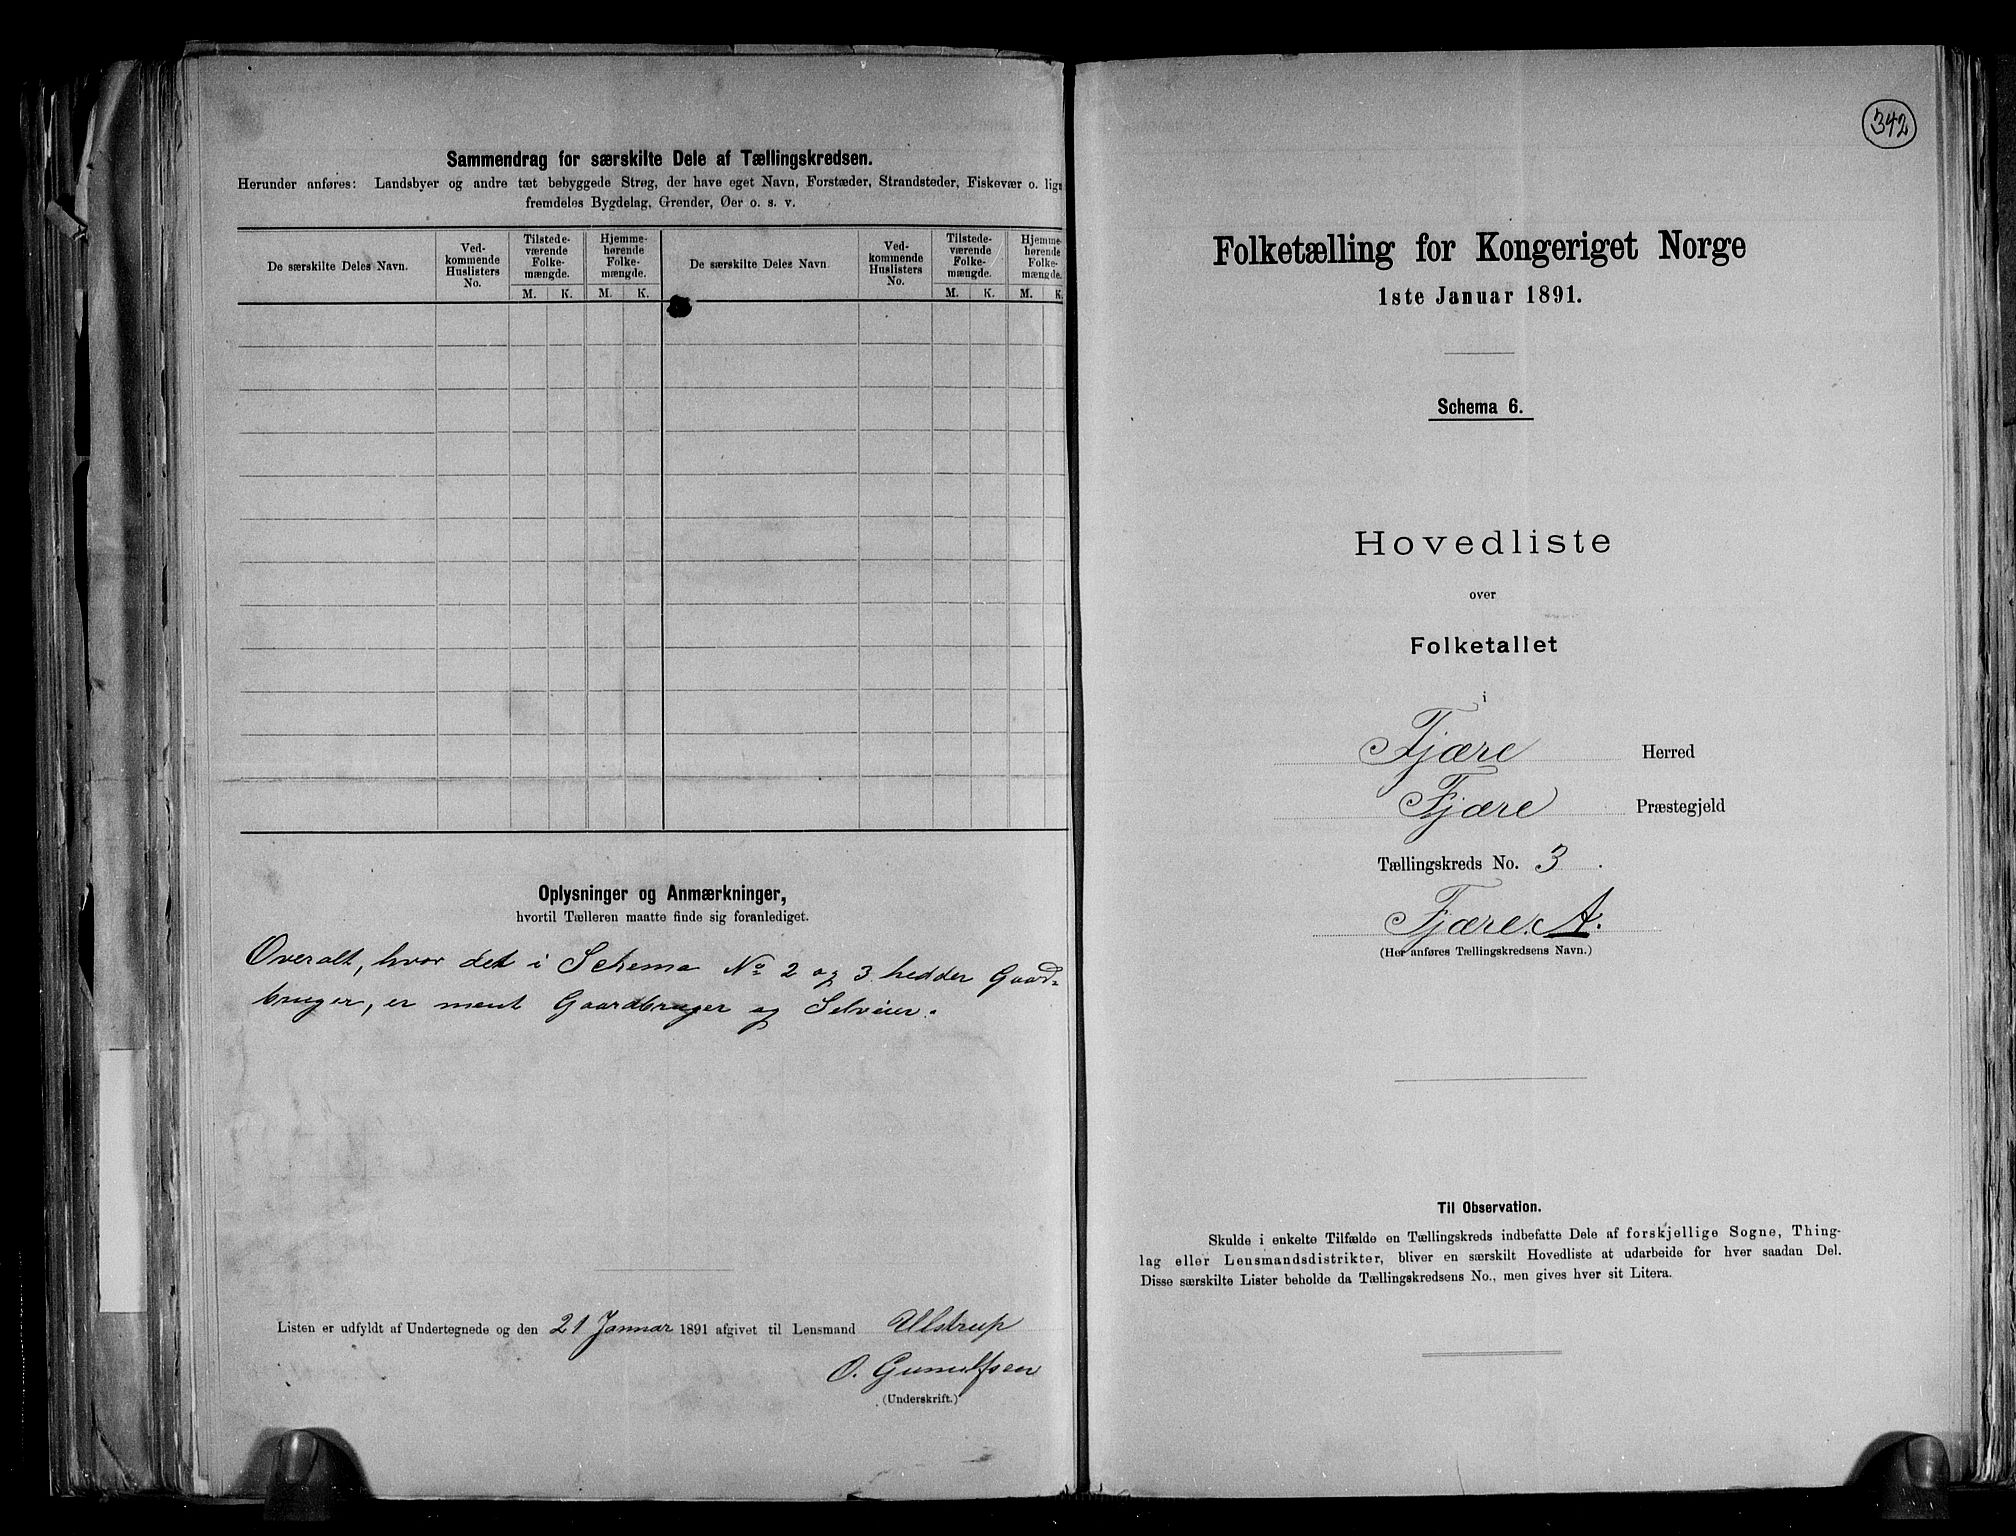 Sammendrag for særskilte Dele af Tællingskredsen.
Herunder anføres: Landsbyer og andre tæt bebyggede Strøg, der have eget Navn, Forstæder, Strandsteder, Fiskevær o. lign
fremdeles Bygdelag, Grender, Øer o. s. v.
De særskilte Deles Navn.
Ved-
kommende
Huslisters
No.
Tilstede-
værende
Folke-
mængde.
Hjemme-
hørende
Folke-
mængde.
M. K. M. K.
De særskilte Deles Navn.
Ved-
kommende
Huslisters
No.
Tilstede-
værende
Folke-
mængde.
Hjemme-
hørende
Folke-
mængde.
M. K. M. K.
Oplysninger og Anmærkninger,
hvortil Tælleren maatte finde sig foranlediget.
Overalt, hvor det i Schema No 2 og 3 hedder Gaard-
bruger, er ment Gaardbruger og Selveier.
Listen er udfyldt af Undertegnede og den 21 Januar 1891 afgivet til Lensmand Ulstrup
O. Gunulfsen
(Underskrift.)
342
Folketælling for Kongeriget Norge
1ste Januar 1891.
Schema 6.
Hovedliste
over
Folketallet
i
Fjære Herred
Fjære Præstegjeld
Tællingskreds No. 3.
Fjære. A.
(Her anføres Tællingskredsens Navn.)
Til Observation.
Skulde i enkelte Tilfælde en Tællingskreds indbefatte Dele af forskjellige Sogne, Thing-
lag eller Lensmandsdistrikter, bliver en særskilt Hovedliste at udarbeide for hver saadan Del.
Disse særskilte Lister beholde da Tællingskredsens No., men gives hver sit Litera.